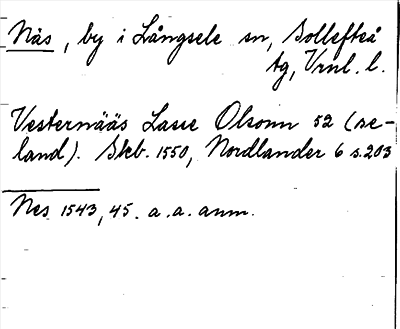 Näs, by i Långsele sn, Sollefteå
tg, Vrnl. l.
Vesternääs Lasse Olsonn 52 (se-
land). Skb. 1550, Nordlander 6 s.203
Nes 1543, 45. a.a. anm.